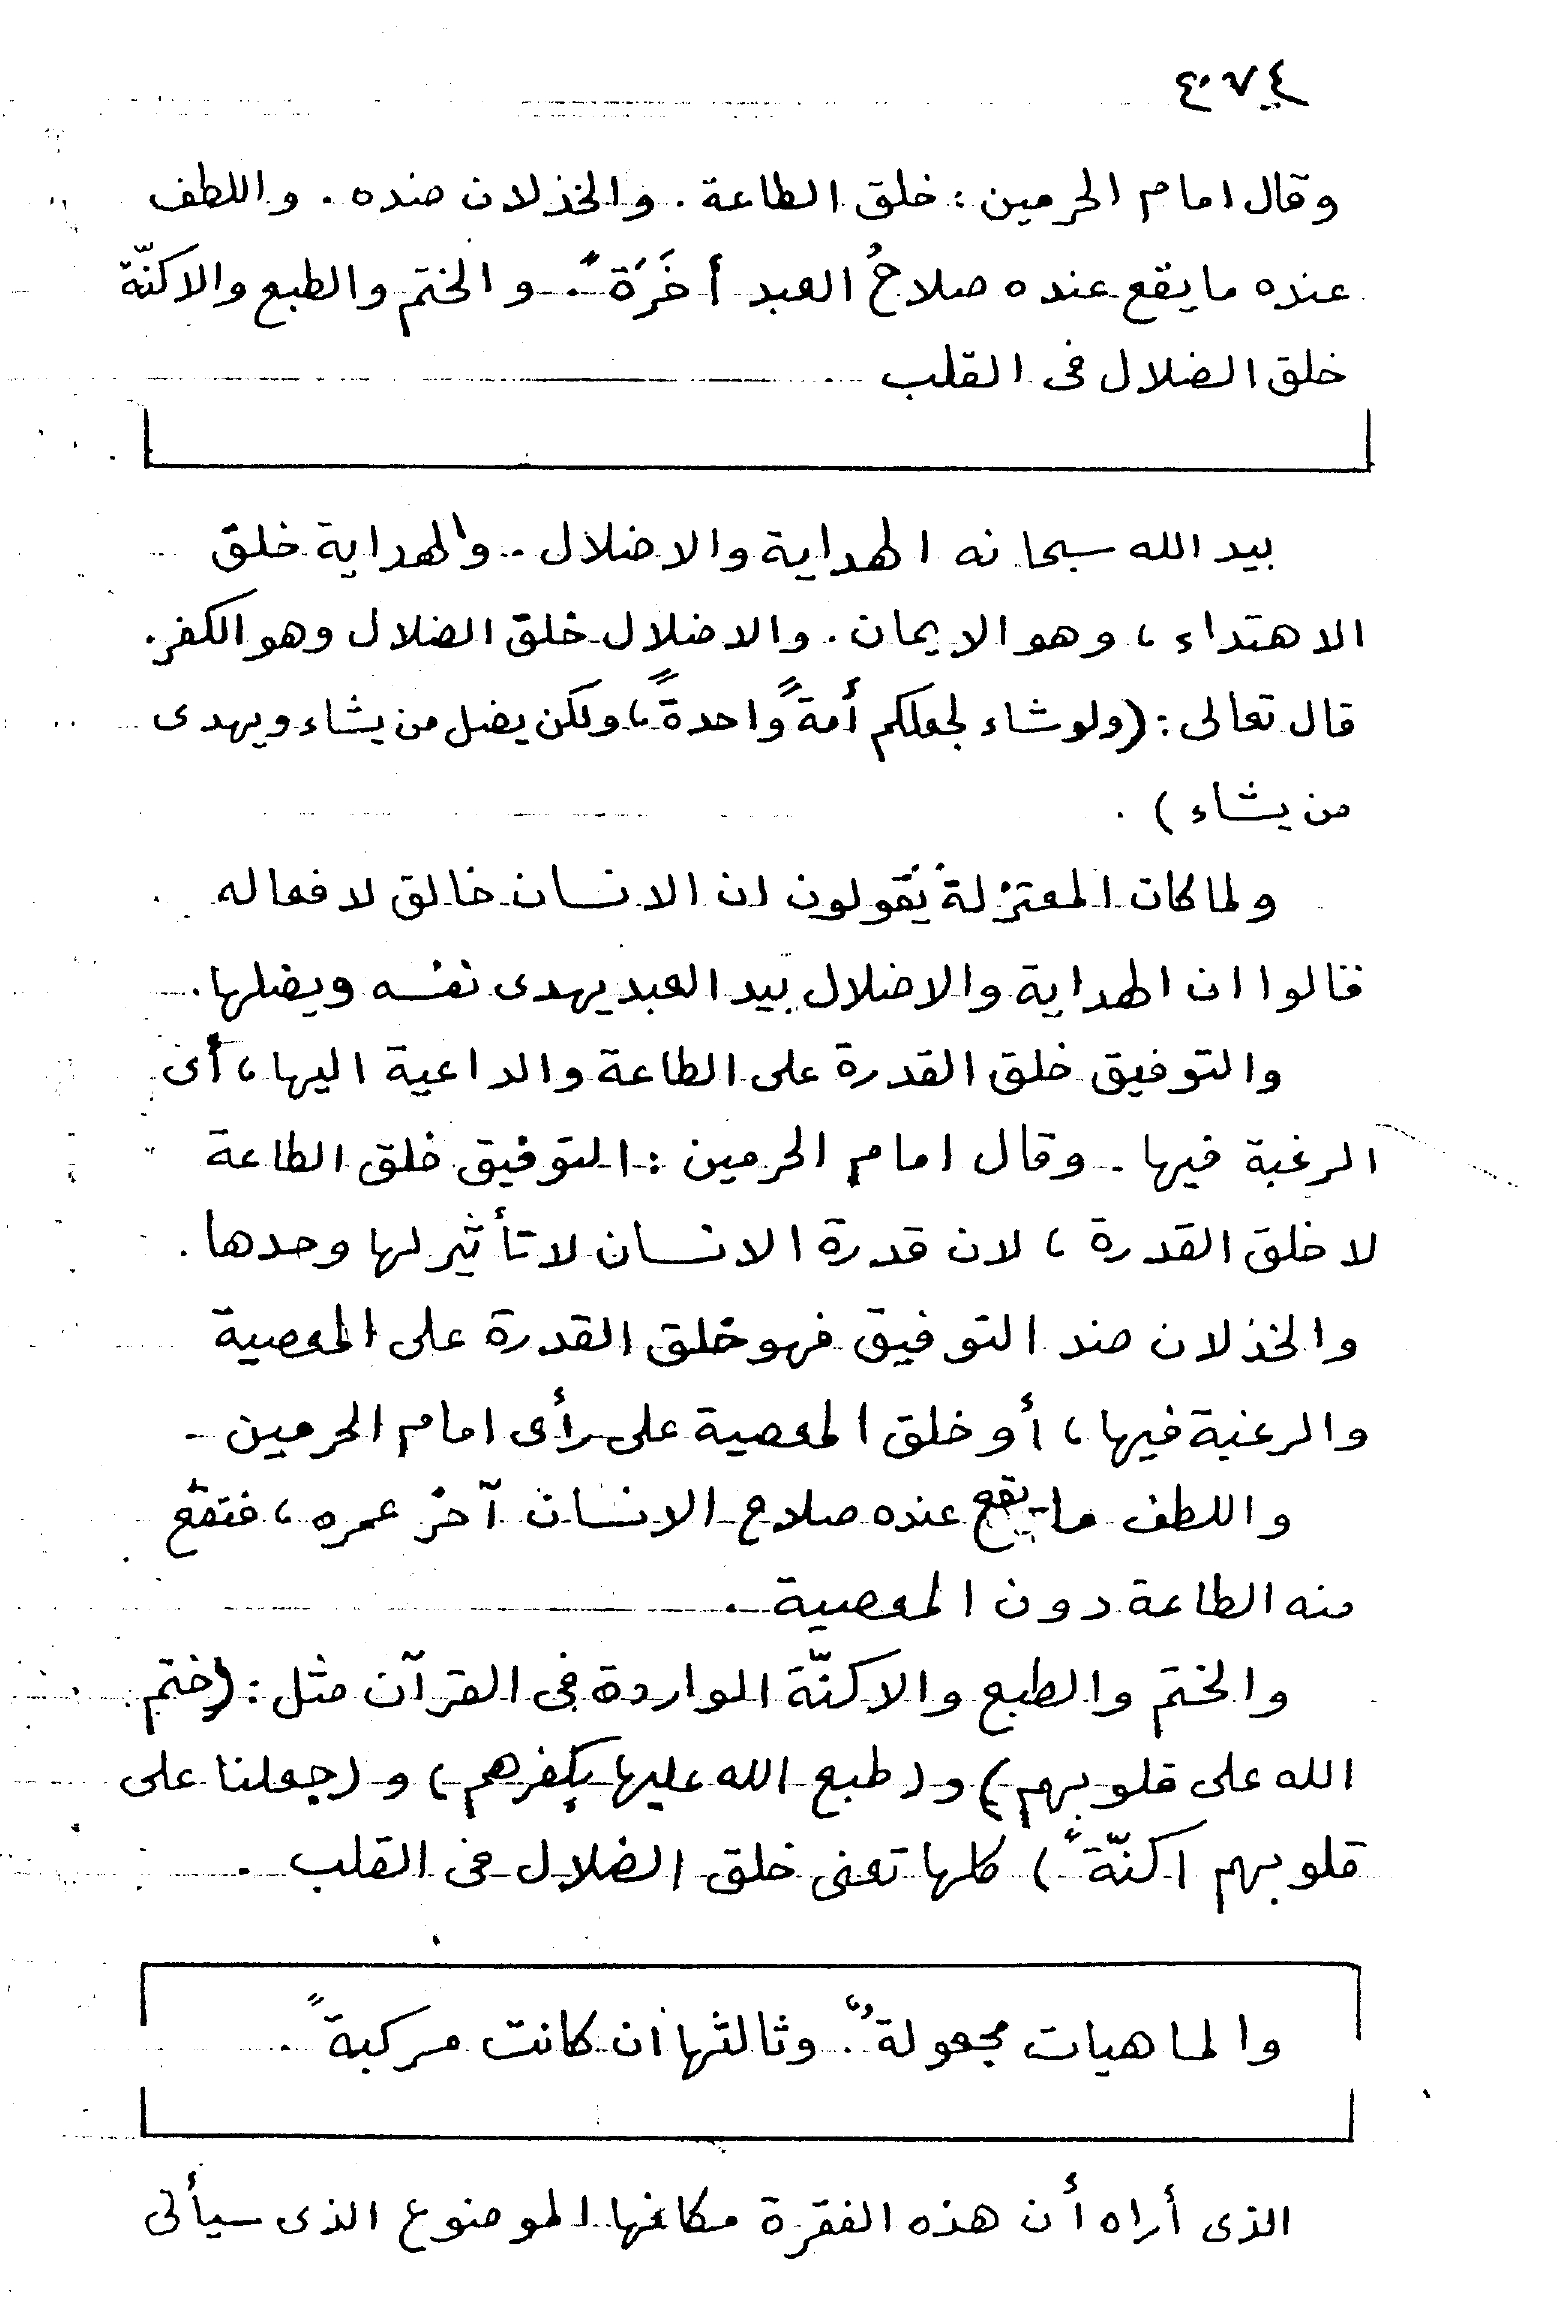 وقال امام الحرمين : خلق الطاعة . والخذلان ضده . واللطف
عنده ما يقع عنده صلاحُ العبد أَخَرَةً . والختم والطبع والاكنّة
خلق الضلال فى القلب
بيد الله سبحانه الهداية والاضلال . والهداية خلق
الاهتداء ، وهو الايمان . والاضلال خلق الضلال وهو الكفر .
قال تعالى : (ولو شاء لجعلكم أمةً واحدةً ، ولكن يضل من يشاء ويهدى
من يشاء ) .
ولما كان المعتزلة يقولون ان الانسان خالق لافعاله
قالوا ان الهداية والاضلال بيد العبد يهدى نفسه ويضلها .
والتوفيق خلق القدرة على الطاعة والداعية اليها ، أى
الرغبة فيها . وقال امام الحرمين : التوفيق خلق الطاعة
لا خلق القدرة ، لان قدرة الانسان لا تأثير لها وحدها .
والخذلان ضد التوفيق فهو خلق القدرة على المعصية
والرغبة فيها ، أو خلق المعصية على رأى امام الحرمين .
واللطف ما يقع عنده صلاح الانسان آخر عمره ، فتقع
منه الطاعة دون المعصية .
والختم والطبع والاكنّة الواردة فى القرآن مثل : (ختم
الله على قلوبهم) و (طبع الله عليها بكفرهم) و (جعلنا على
قلوبهم اكنّةً ) كلها تعنى خلق الضلال فى القلب .
والماهيات مجعولةٌ . وثالثها ان كانت مركبةً .
الذى أراه أن هذه الفقرة مكانها الموضوع الذى سيأتى